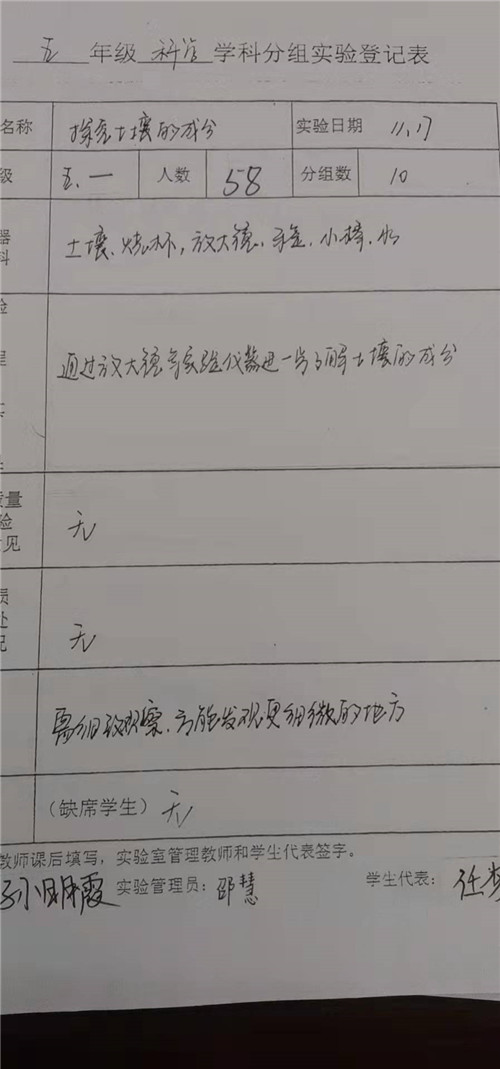 五 年级 科学 学科分组实验登记表
名称 探究土壤的成分 实验日期 11.17
级 五.一 人数 58 分组数 10
器 土壤、烧杯，放大镜、小棒、水
料
验
通过放大镜等实验仪器进一步了解土壤的成分
程
质量
验 无
意见
损
处 无
况
需细致观察，方能发现更细微的地方
（缺席学生）无
教师课后填写，实验室管理教师和学生代表签字。
孙明霞 实验管理员：邵慧 学生代表：任梦